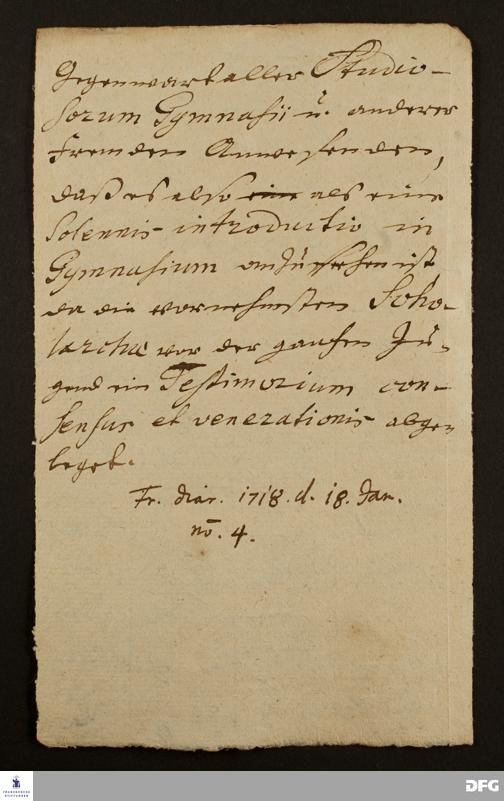 Gegenwart aller Studio-
sorum Gymnasii u. anderer
fremden Anwesenden,
daß es also eine als eine
Solennis introductio in
Gymnasium anzusehen ist,
da die vornehmsten Scho-
larchæ vor der gantzen Ju-
gend ein Testimonium con-
sensus et venerationis abge-
leget.
Fr. diar. 1718. d. 18. Jan.
no. 4.
FRANCKESCHE
STIFTUNGEN
DFG